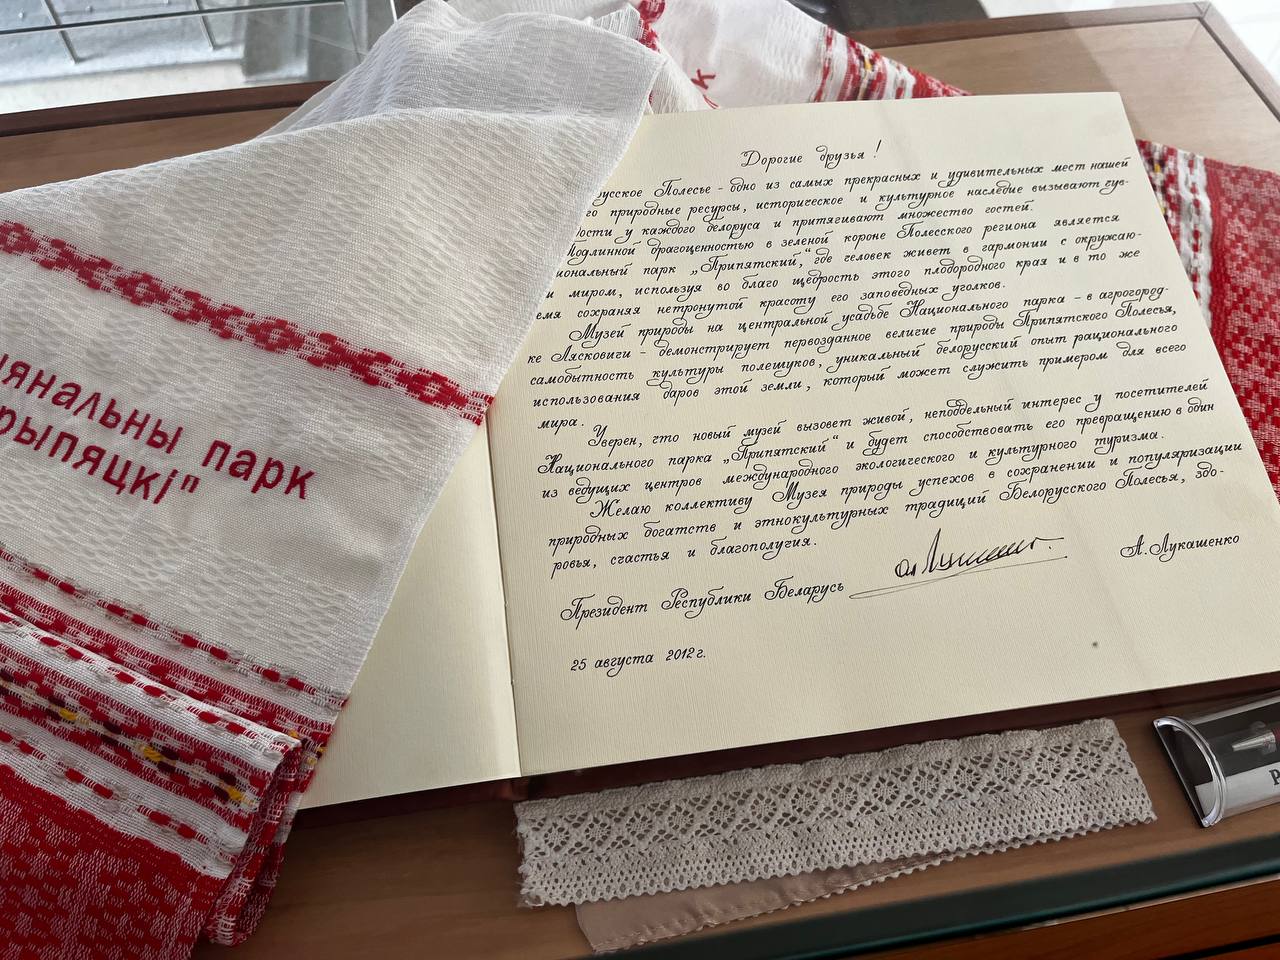 к
Дорогие друзья!
русское Полесье - одно из самых прекрасных и удивительных мест нашей
го природные ресурсы, историческое и культурное наследие вызывают чув-
дости у каждого белоруса и притягивают множество гостей.
Подлинной драгоценностью в зеленой короне Полесского региона является
иональный парк „Припятский“, где человек живет в гармонии с окружаю-
и миром, используя во благо щедрость этого плодородного края и в то же
емя сохраняя нетронутой красоту его заповедных уголков.
Музей природы на центральной усадьбе Национального парка - в агрогород-
ке Лясковичи - демонстрирует первозданное величие природы Припятского Полесья,
самобытность культуры полешуков, уникальный белорусский опыт рационального
использования даров этой земли, который может служить примером для всего
мира.
Уверен, что новый музей вызовет живой, неподдельный интерес у посетителей
Национального парка „Припятский“ и будет способствовать его превращению в один
из ведущих центров международного экологического и культурного туризма.
Желаю коллективу Музея природы успехов в сохранении и популяризации
природных богатств и этнокультурных традиций Белорусского Полесья, здо-
ровья, счастья и благополучия.
Президент Республики Беларусь А.Лукашенко
25 августа 2012г.
цянальны парк
рыпяцкі"